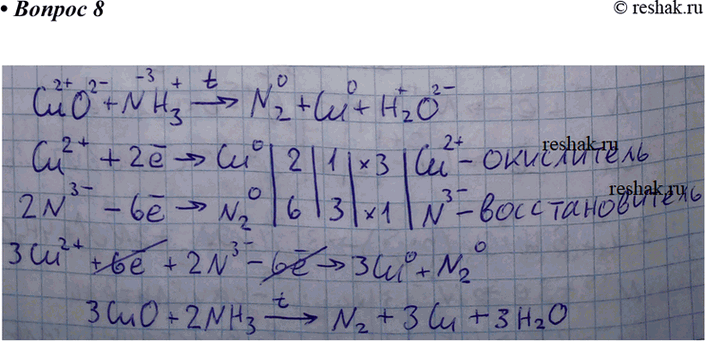 • Вопрос 8
© reshak.ru
Cu²⁺O²⁻ + N⁻³H₃⁺ →ᵗ N₂⁰ + Cu⁰ + H₂⁺O²⁻
Cu²⁺ + 2ē → Cu⁰ | 2 | 1 | ×3 | Cu²⁺ – окислитель
reshak.ru
2N³⁻ – 6ē → N₂⁰ | 6 | 3 | ×1 | N³⁻ – восстановитель
reshak.ru
3Cu²⁺ + 6ē + 2N³⁻ – 6ē → 3Cu⁰ + N₂⁰
3CuO + 2NH₃ →ᵗ N₂ + 3Cu + 3H₂O